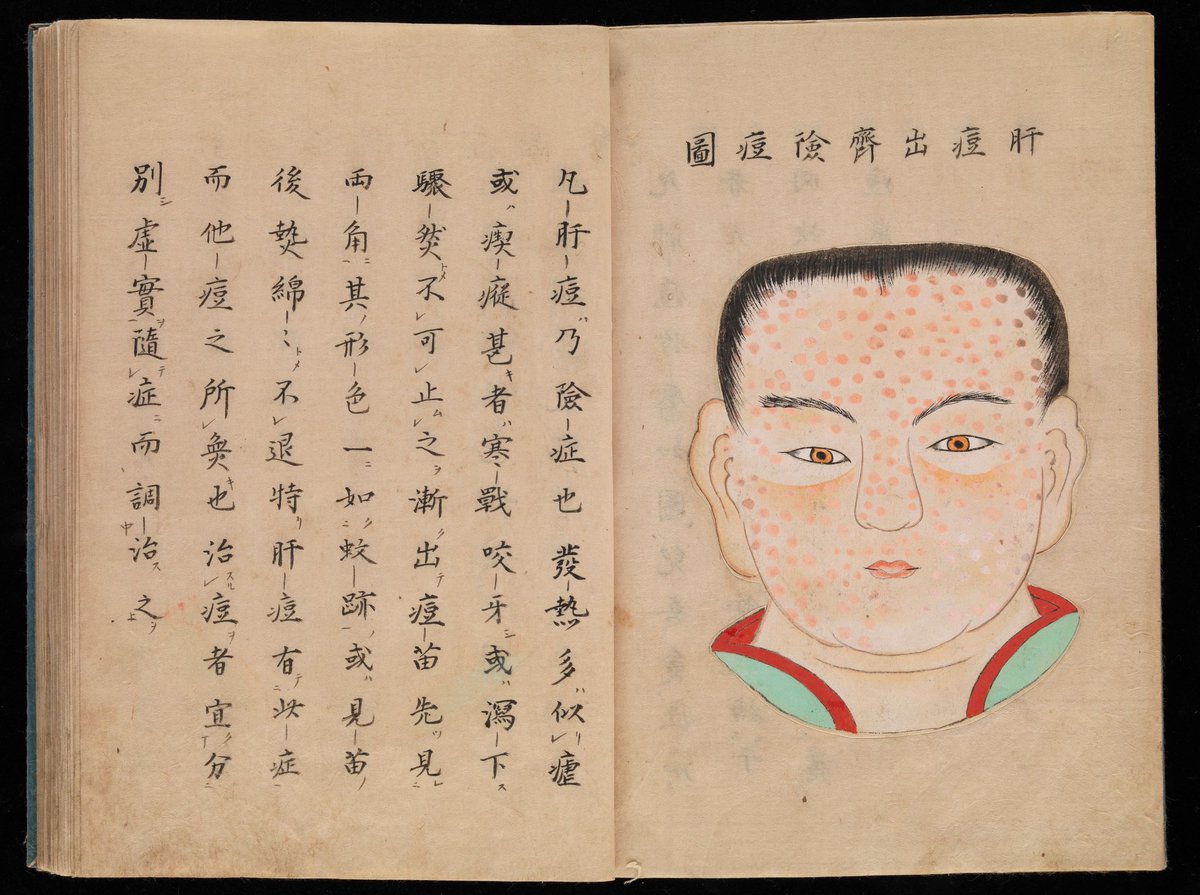 肝痘出齊險痘圖
凡肝痘乃險症也發熱多似瘧
或瘈瘲甚者寒戰咬牙或瀉下
驟然不可止之漸出痘苗先見
両角其形色一如蚊跡或見苗
後熱綿〻不退特肝痘有此症
而他痘之所無也治痘者宜分
別虛實隨症而調治之